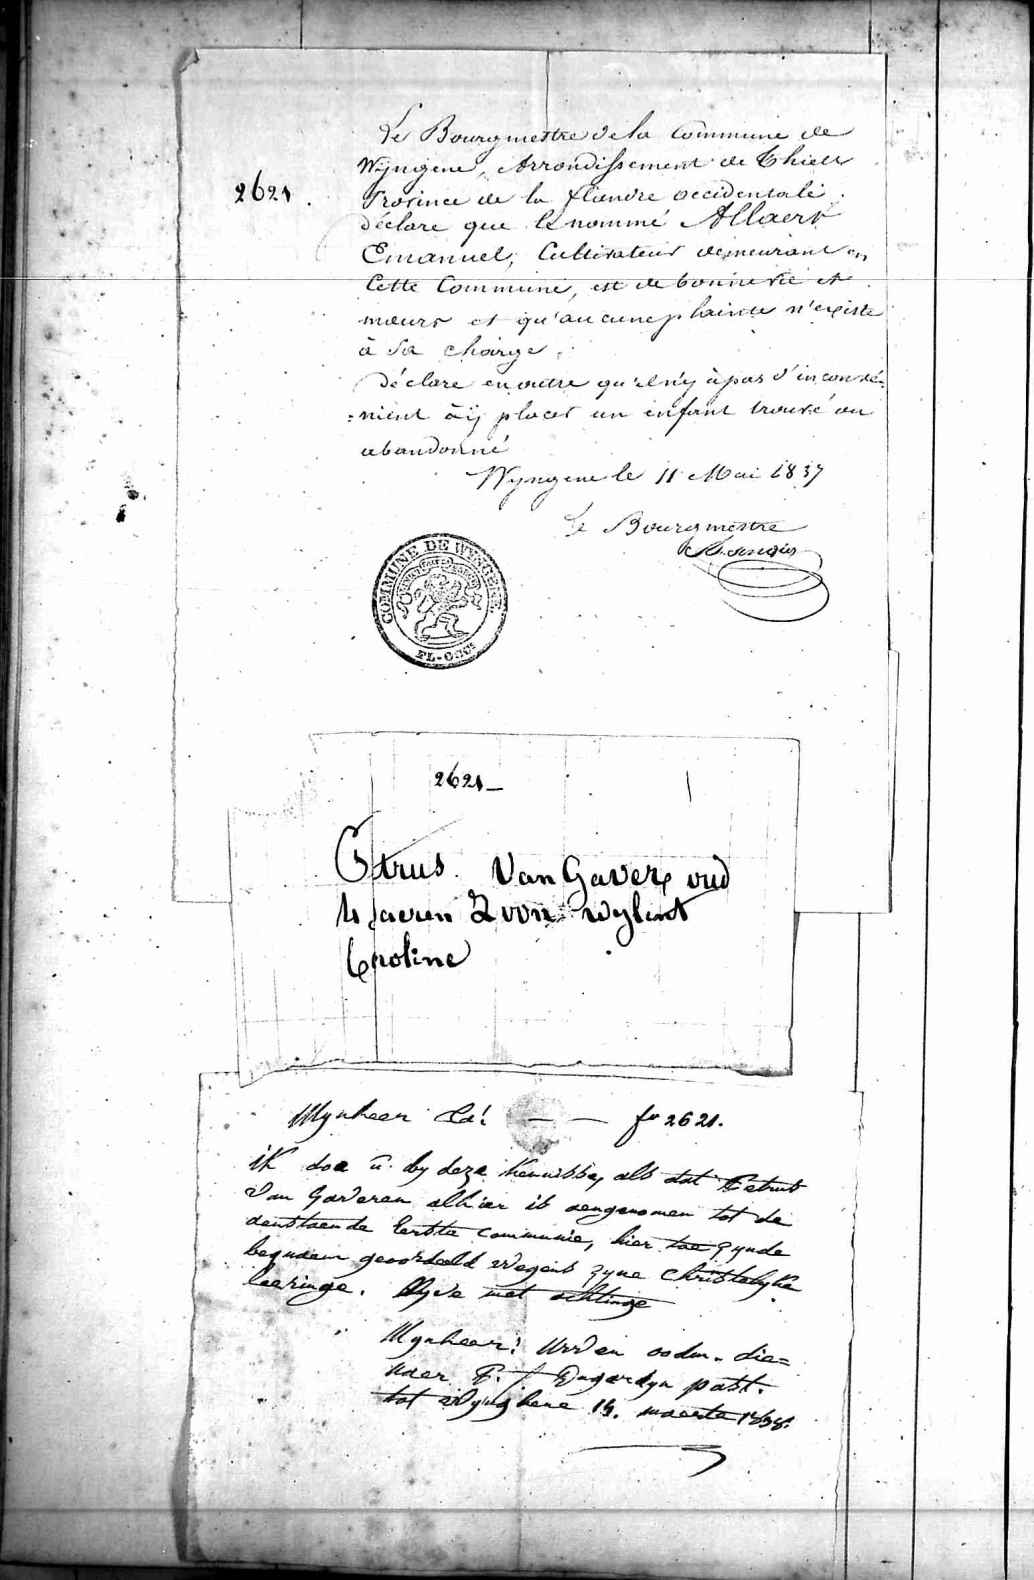 Le Bourgmestre de la Commune de
Wyngene, Arrondissement de Thielt
2621.
Province de la flandre occidentale
déclare que le nommé Allaert
Emanuel, Cultivateur demeurant en
Cette Commune, est de bonne vie et
mœurs et qu'aucune plainte n'existe
à Sa charge.
Déclare en outre qu'il n'y à pas d'inconvé-
=nient à ij placer un enfant trouvé ou
abandonné
Wyngene le 11 Mai 1837
Le Bourgmestre
COMMUNE DE WYNGENE.
FL-OCC.
2621_
Petrus Van Gaveren oud
14 jaeren woon wylent
Caroline
Mynheer — — fo 2621.
ik doe u by deze kennisse, als dat Petrus
Van Gaveren alhier is aengenomen tot de
aenstaende Eerste Communie, hier toe zynde
bequaem geoordeeld wegens zyne Christelyke
leeringe. Blyve met achtinge
Mynheer! Uwen oodm. die=
naer past.
tot Wynghene 14. maerte 1838.